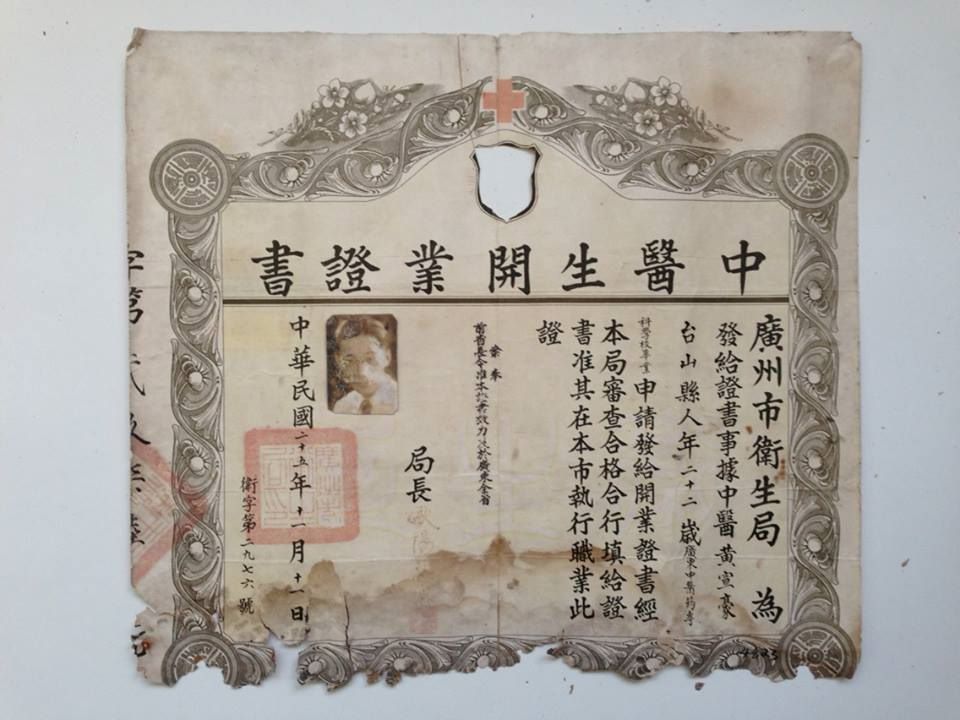 中醫生開業證書
廣州市衛生局 為
發給證書事據中醫黃宣豪
台山縣人年二十二歲廣東中醫药專
科學校畢業申請發給開業證書經
本局審查合格合行填給證
書准其在本市執行職業此
證
業奉
前省長令准本證書效力及於廣東全省
局長
中華民國二十五年十一月十一日
衛字第二九七六號
字第